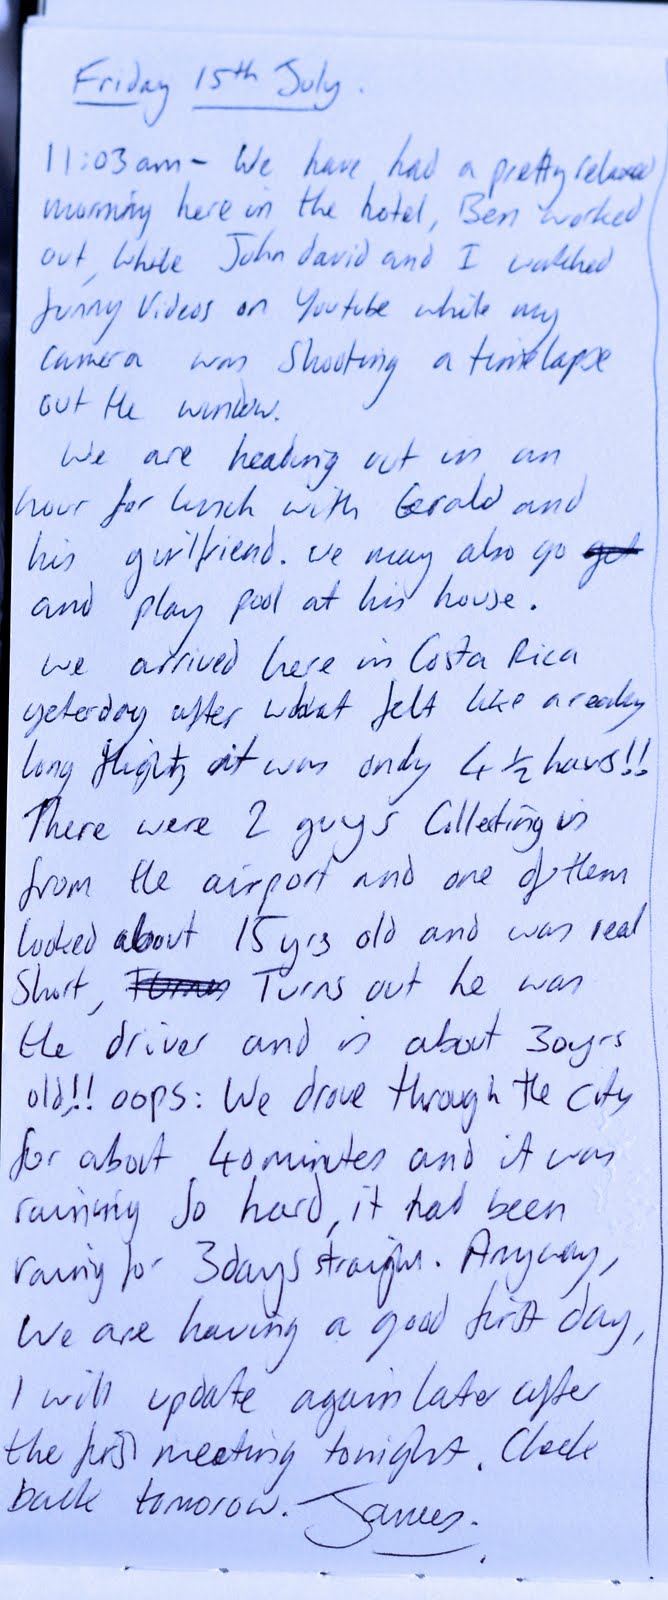 Friday 15th July.
11:03am - We have had a pretty relaxed
morning here in the hotel, Ben worked
out, while John david and I watched
funny Videos on Youtube while my
camera was Shooting a timelapse
out the window.
We are heading out in an
hour for lunch with Gerald and
his girlfriend. we may also go get
and play pool at his house.
we arrived here in Costa Rica
yesterday after what felt like a really
long flight, it was only 4 ½ hours!!
There were 2 guys Collecting us
from the airport and one of them
looked about 15yrs old and was real
Short, Turns Turns out he was
the driver and is about 30yrs
old!! oops: We drove through the city
for about 40minutes and it was
raining So hard, it had been
raing for 3days straight. Anyway,
We are having a good first day,
I will update again later after
the first meeting tonight. Check
back tomorow. James.